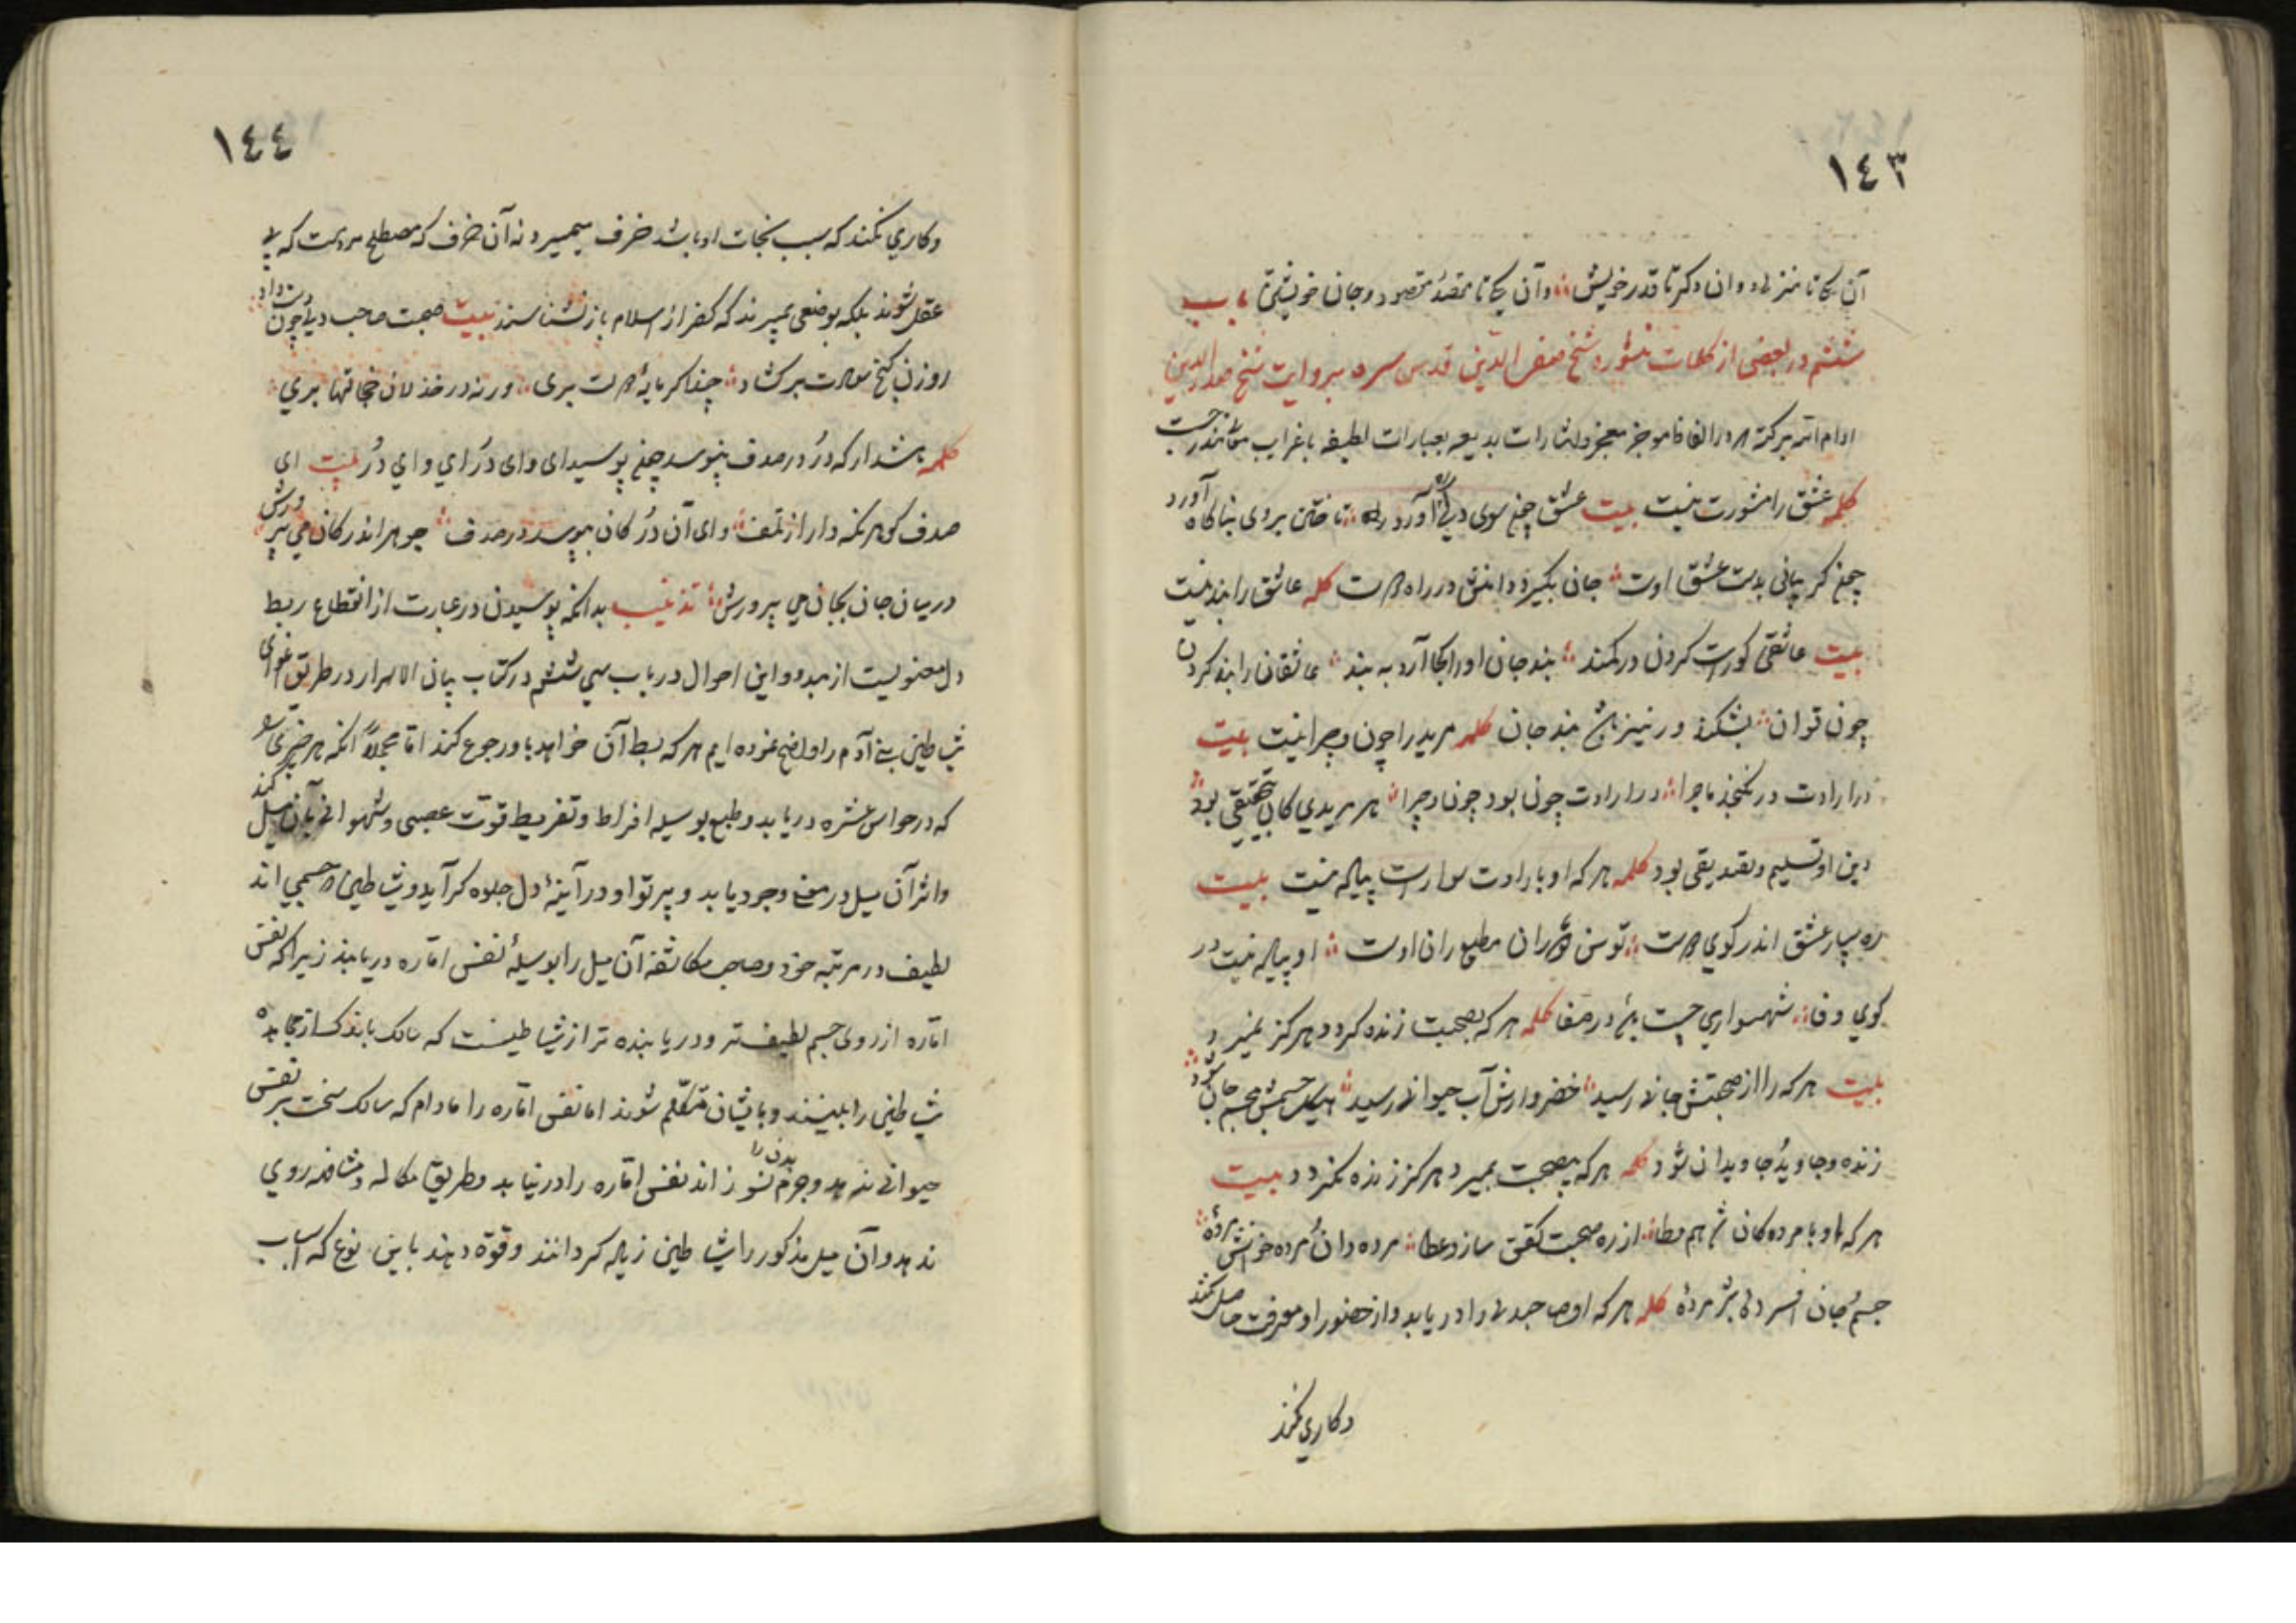 ١٤٣
آن یکی تا منزل و وان دکر تا قدر خویش وآن یکی تا مقصد مقصود و جان خویشتن باب
ششم در بعضی از کلمات منثوره شیخ صفی الدین قدس سره بروایت شیخ صدر الدین
ادام الله برکته در الفاظ موجز معجز واشارات بدیعه بعبارات لطیفه با غرایب
کلمه عشق را مشورت نیست بیت عشق چون سوی دلی آورد راه تا ختن بروی بناکاه آورد
چون کریبانی بدست عشق اوست جان بگیرد دامنش در راه دوست کلمه عاشق را بند نیست
بیت عاشقی کورست کردن در کمند بند جان اورا کجا آرد به بند عاشقانرا بند کردن
چون توان بشکند ور نیز باشد بند جان کلمه مرید را چون و چرا نیست بیت
در ارادت در نکنجد ماجرا در ارادت چون بود چون و چرا هر مریدی کان حقیقی بود
دین او تسلیم و تصدیقی بود کلمه هر که او با ارادت سوارست پیاله نیست بیت
ره سپار عشق اندر کوی دوست توسن دوران مطیع ران اوست او پیاله نیست در
کوی وفا شهسواری چست باشد در صفا کلمه هر که بصحبت زنده کردد هرکز نمیرد
بیت هر که را از صحبتش جانی رسید خضر وارش آب حیوانی رسید هیکل جسمش بجسم جان شود
زنده و جاوید جاویدان شود کلمه هر که بصحبت بمیرد هرکز زنده نکردد بیت
هر که او با مردکان شد هم وطا از ره صحبت کفن سازد عطا مرده دان مرده خوانش مردهٔ
جسم و جان افسرد دل پژمردهٔ کلمه هر که او صاحبدلی را دریابد و از حضور او معرفت حاصل نکند
وکاری نکند
١٤٤
وکاری نکند که سبب نجات او باشد خرف میمیرد نه آن خرف که مصطلح مردمست که بی
عقل شوند بلکه بوضعی بمیرند که کفر از اسلام باز نشناسند بیت صحبت صاحب دلی چون دست داد
روزن کنج سعادت برکشاد جهد کن کر مایهٔ دست بری ورنه در خذلان خجالتها بری
کلمه هشدار که در در صدف نپوسد چون پوسید ای وای در ای وای در بیت ای
صدف کوهر نکه دار از تلف وای آن در کان بپوسد در صدف جوهر اندر کان می پرورش
در میان جان بجان می پرورش تذنیب بدانکه پوسیدن در عبارت از انقطاع ربط
دل معنویست از مبدء و این احوال در باب سی ششم در کتاب بیان الاسرار در طریق اغوای
شیاطین بنی آدم را واضح نموده ایم هر که بسط آن خواهد با و رجوع کند اما مجملاً آنکه هر خیری و شر
که در حواس عشره دریابد و طبع بوسیله افراط و تفریط قوت غضبی و شهوانی بآن میل کند
و اثر آن میل در معنی وجود یابد و پرتو او در آینهٔ دل جلوه کر آید و شیاطین جسمی اند
لطیف در مرتبه خود و صاحب مکاشفه آن میل را بوسیلهٔ نفس اماره دریابند زیرا که نفس
اماره از روی جسم لطیف تر و دریابنده تر از شیاطینست که سالک باندک ساز مجاهده
شیاطین را بینند و بایشان متکلم شوند اما نفس اماره را مادام که سالک سخت بر نفس
حیوانی ننهد و جرم بدن را نسوزاند نفس اماره را در نیابد و طریق مکالمه و مشافهه روی
ندهد و آن میل مذکور را شیاطین زیاله کردانند و قوة دهند باین نوع که اسباب